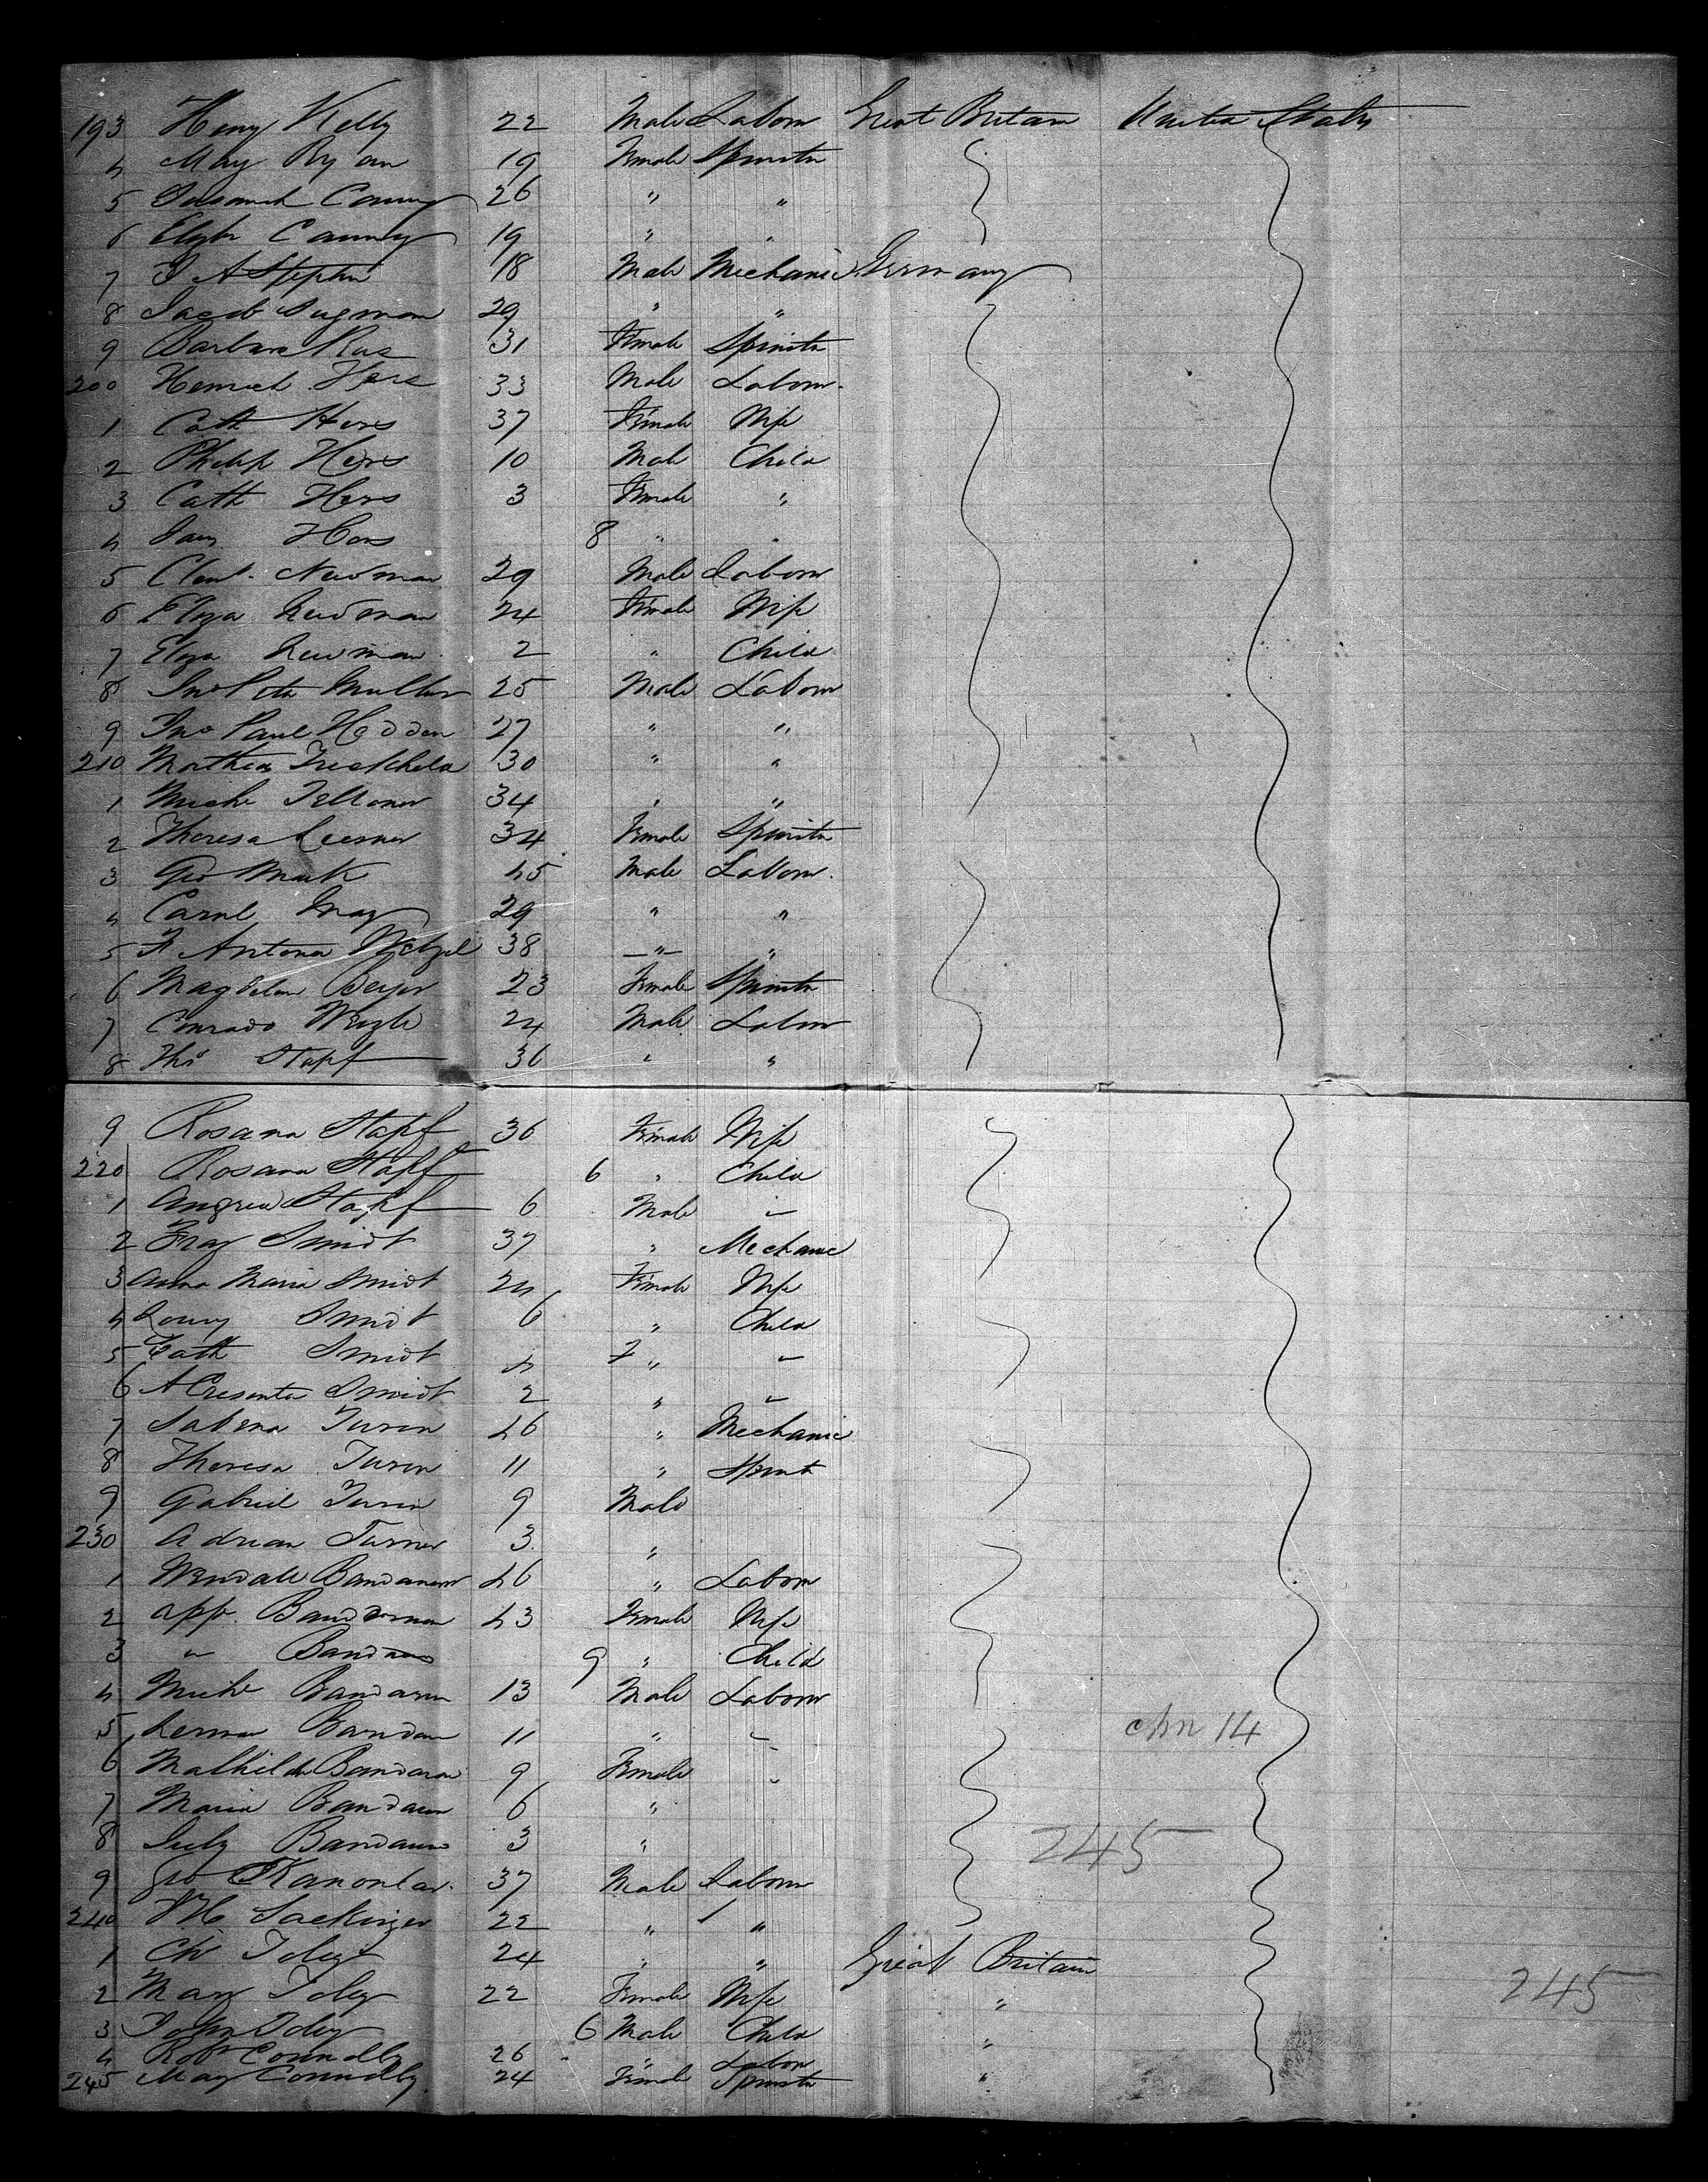 193 Heny Kelly 22 Male Labour Great Britain United States
4 May Ryan 19 Female Spinster
5 Susannah Canny 26 " "
6 Elizh Canny 19 " "
7 J A Stephen 18 Male Mechanic Germany
8 Jacob Sugman 29 " "
9 Barbara 31 Female Spinster
200 Henrich Hers 33 Male Labour
1 Cath Hers 37 Female Wife
2 Philip Hers 10 Male Child
3 Cath Hers 3 Female "
4 Hers 8 " "
5 Clent. Newman 29 Male Labour
6 Eliza Newman 24 Female Wife
7 Eliza Newman 2 " Child
8 Jno Peter Muller 25 Male Labour
9 Jno Paul Hedden 27 " "
210 Mathias 30 " "
1 Miche 34 " "
2 Theresa 34 Female Spinster
3 Geo Mark 45 Male Labour
4 Carul May 29 " "
5 F Antona Wetzel 38 " "
6 Magdelen Beyer 23 Female Spinster
7 Conrado Weigle 24 Male Labour
8 Ths Stapf 36 " "
9 Rosana Stapf 36 Female Wife
220 Rosana Stapf 6 " Child
1 Andrew Stapf 6 Male "
2 Fraz Smidt 37 " Mechanic
3 Anna Maria Smidt 24 Female Wife
4 Smidt 6 " Child
5 Cath Smidt 4 F " "
6 A Cresenta Smidt 2 " "
7 Sabena Turen 46 " Mechanic
8 Theresa Turen 11 " Spinst
9 Gabriel Turen 9 Male
230 Adrian Turner 3 "
1 Wendale 46 " Labour
2 App. 43 Female Wife
3 " 9 " Child
4 Miche Bandaren 13 Male Labour
5 11 " "
6 Mathilde 9 Female "
7 Maria Bandaren 6 "
8 July 3 "
9 Geo 37 Male Labour
240 Sackinger 22 " "
1 Ch Foley 24 " " Great Britain
2 Mary Foley 22 Female Wife "
3 John Foley 6 Male Child "
4 Robt Connolly 26 " Labour
245 May Connolly 24 Female Spinster "
chn 14
245
245